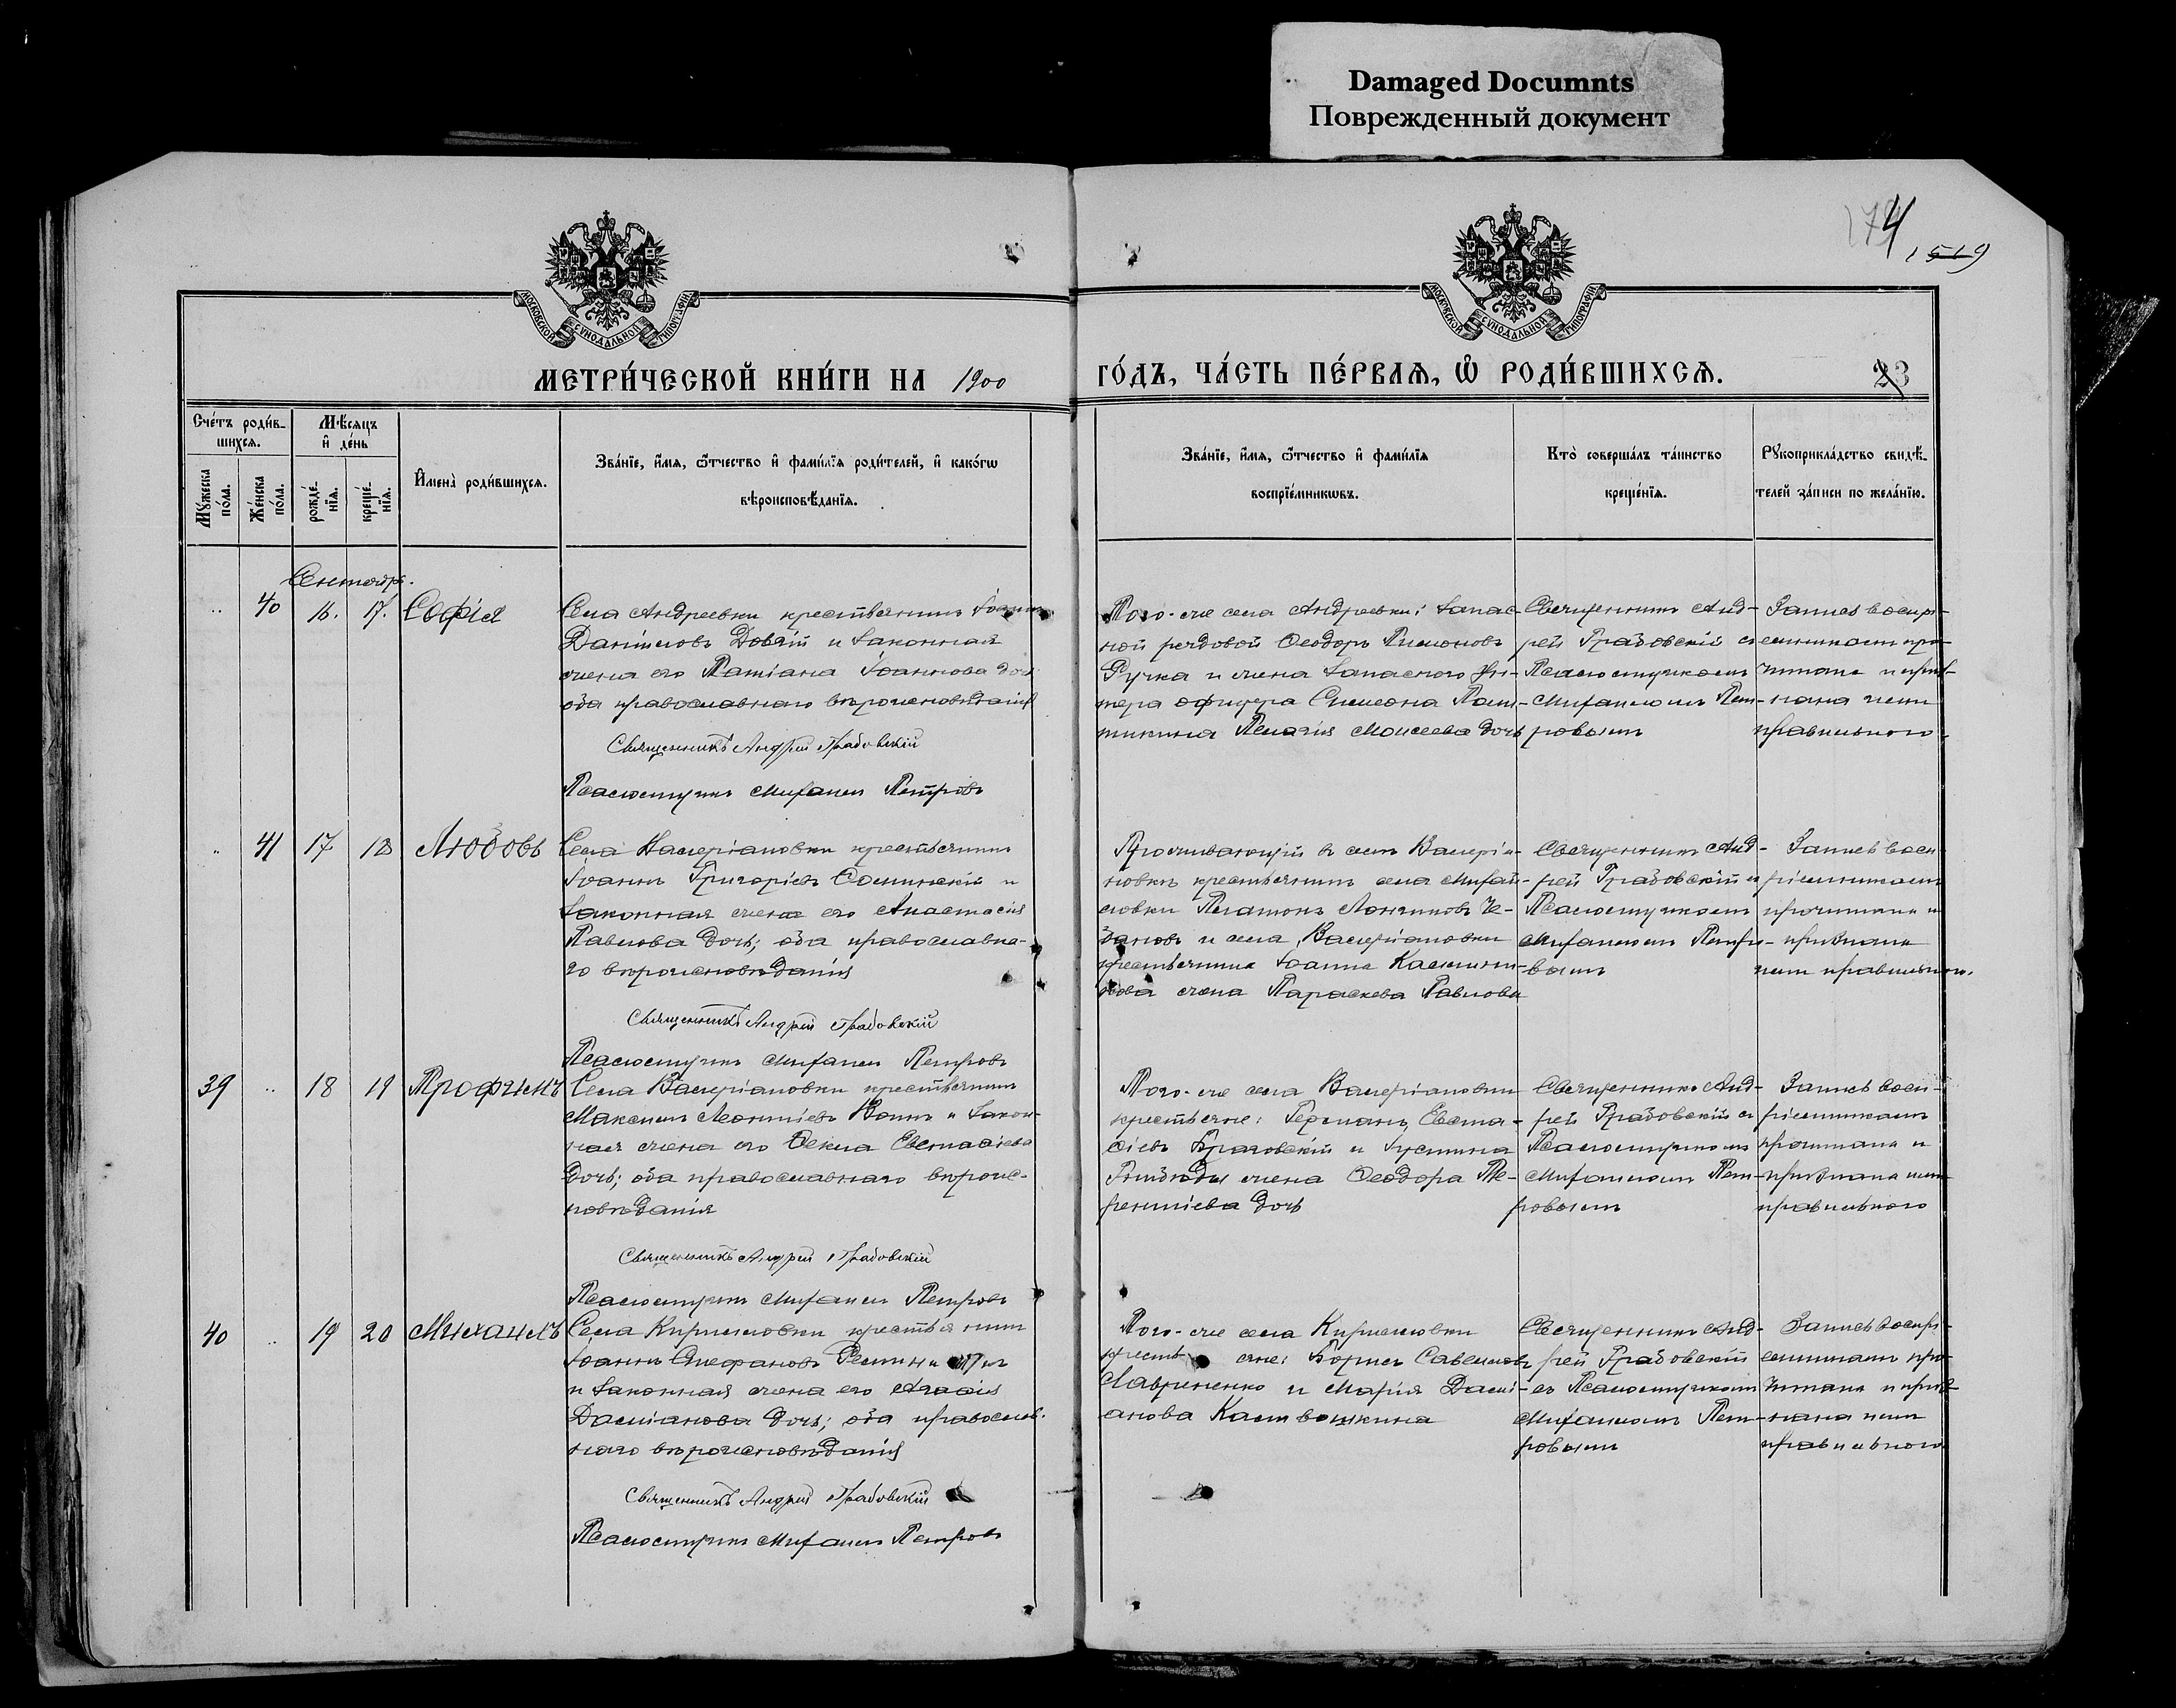 Damaged Documnts
Поврежденный документ
174
1519
МОСКОВСКОЙ СѴНОДАЛЬНОЙ ТИПОГРАФІИ
МОСКОВСКОЙ СѴНОДАЛЬНОЙ ТИПОГРАФІИ
МЕТРИ́ЧЕСКОЙ КНИ́ГИ НА 1900
ГО́ДЪ, ЧА́СТЬ ПЕ́РВАѦ, Ѡ҆ РОДИ́ВШИХСѦ.
23
Сче́тъ роди́в-
шихсѧ.
Мꙋ́жеска
по́ла.
Же́нска
по́ла.
Мѣ́сѧцъ
и҆ де́нь
рожде́-
нїѧ.
креще́-
нїѧ.
И҆мена̀ роди́вшихсѧ.
Зва́нїе, и҆́мѧ, ѻ҆́тчество и҆ фами́лїѧ роди́телей, и҆ како́гѡ
вѣроисповѣ́данїѧ.
Зва́нїе, и҆́мѧ, ѻ҆́тчество и҆ фами́лїѧ
воспрїе́мникѡвъ.
Кто̀ соверша́лъ та́инство
креще́нїѧ.
Рꙋкоприкла́дство свидѣ́-
телей за́писи по жела́нїю.
Сентябрь.
40 16. 17. Софія
Села Андреевки крестьянинъ Іоаннъ
Даніиловъ Довгій и законная
жена его Татіана Іоаннова дочь
оба православнаго вѣроисповѣданія
Священникъ Андрей Грабовскій
Псаломщикъ Михаилъ Петровъ
Того-же села Андреевки: запас-
ной рядовой Ѳеодоръ Тимоновъ
Ручка и жена запасного ун-
теръ офицера Симеона
Пелагія Моисеева дочь
Священникъ Анд-
рей Грабовскій съ
Псаломщикомъ
Михаиломъ Пет-
ровымъ
Запись воспрі-
емникамъ про-
читана и приз-
нана ими
правильною
41 17 18 Любовь
Села Валеріановки крестьянинъ
Іоаннъ Григоріевъ Соминскій и
законная жена его Анастасія
Павлова дочь; оба православна-
го вѣроисповѣданія
Священникъ Андрей Грабовскій
Псаломщикъ Михаилъ Петровъ
Проживающій въ селѣ Валеріа-
новкѣ крестьянинъ села Михай-
ловки Платонъ Логгиновъ Че-
бановъ и села Валеріановки
крестьянина Іоанна
жена Параскева Павлова
Священникъ Анд-
рей Грабовскій съ
Псаломщикомъ
Михаиломъ Петро-
вымъ
Запись восп-
ріемникамъ
прочитана и
признана
ими правильною.
39 18 19 Трофимъ
Села Валеріановки крестьянинъ
Максимъ Леонтіевъ Воинъ и закон-
ная жена его Ѳекла Евстафіева
дочь; оба православнаго вѣроис-
повѣданія
Священникъ Андрей Грабовскій
Псаломщикъ Михаилъ Петровъ
Того-же села Валеріановки
крестьяне: Германъ Евста-
фіевъ Браговскій и Іустина
жена Ѳеодора Те-
рентіева дочь
Священникъ Анд-
рей Грабовскій съ
Псаломщикомъ
Михаиломъ Пет-
ровымъ
Запись восп-
ріемникамъ
прочитана и
признана ими
правильною
40 19 20 Михаилъ
Села Кирилловки крестьянинъ
Іоаннъ Стефановъ
и законная жена его Агафія
Даміанова дочь; оба православ-
наго вѣроисповѣданія
Священникъ Андрей Грабовскій
Псаломщикъ Михаилъ Петровъ
Того-же села Кирилловки
крестьяне: Борисъ Савельевъ
Лавриненко и Марія Дамі-
анова Кастюшкина
Священникъ Анд-
рей Грабовскій
съ Псаломщикомъ
Михаиломъ Пет-
ровымъ
Запись воспрі-
емникамъ про-
читана и приз-
нана ими
правильною